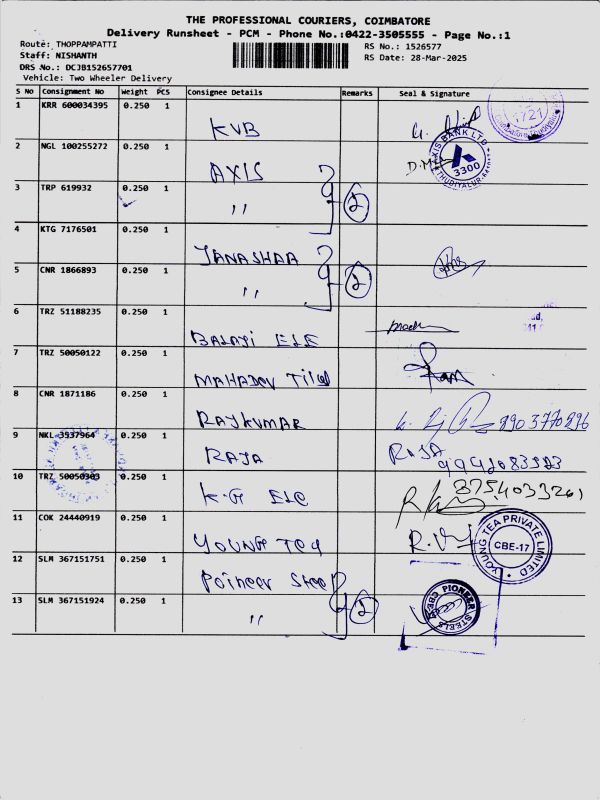 THE PROFESSIONAL COURIERS, COIMBATORE
Delivery Runsheet - PCM - Phone No.:0422-3505555 - Page No.:1
Route: THOPPAMPATTI
RS No.: 1526577
Staff: NISHANTH
RS Date: 28-Mar-2025
DRS No.: DCJB152657701
Vehicle: Two Wheeler Delivery
S No Consignment No Weight PCS Consignee Details Remarks Seal & Signature
1 KRR 600034395 0.250 1 KVB
1721
2 NGL 100255272 0.250 1 AXIS
AXIS BANK LTD. 3300
3 TRP 619932 0.250 1 " 2
4 KTG 7176501 0.250 1 JANASHAA
5 CNR 1866893 0.250 1 " 2
6 TRZ 51188235 0.250 1 BALAJI ELE
7 TRZ 50050122 0.250 1 MAHADEV
8 CNR 1871186 0.250 1 RAJKUMAR
9 NKL 3537964 0.250 1 RAJA RAJA
10 TRZ 50050303 0.250 1 K.G ELE 8754033261
11 COK 24440919 0.250 1 YOUNG TEA
YOUNG TEA PRIVATE LIMITED CBE-17
12 SLM 367151751 0.250 1 Poineer Steel
13 SLM 367151924 0.250 1 " 2
PIONEER STEELS CBE